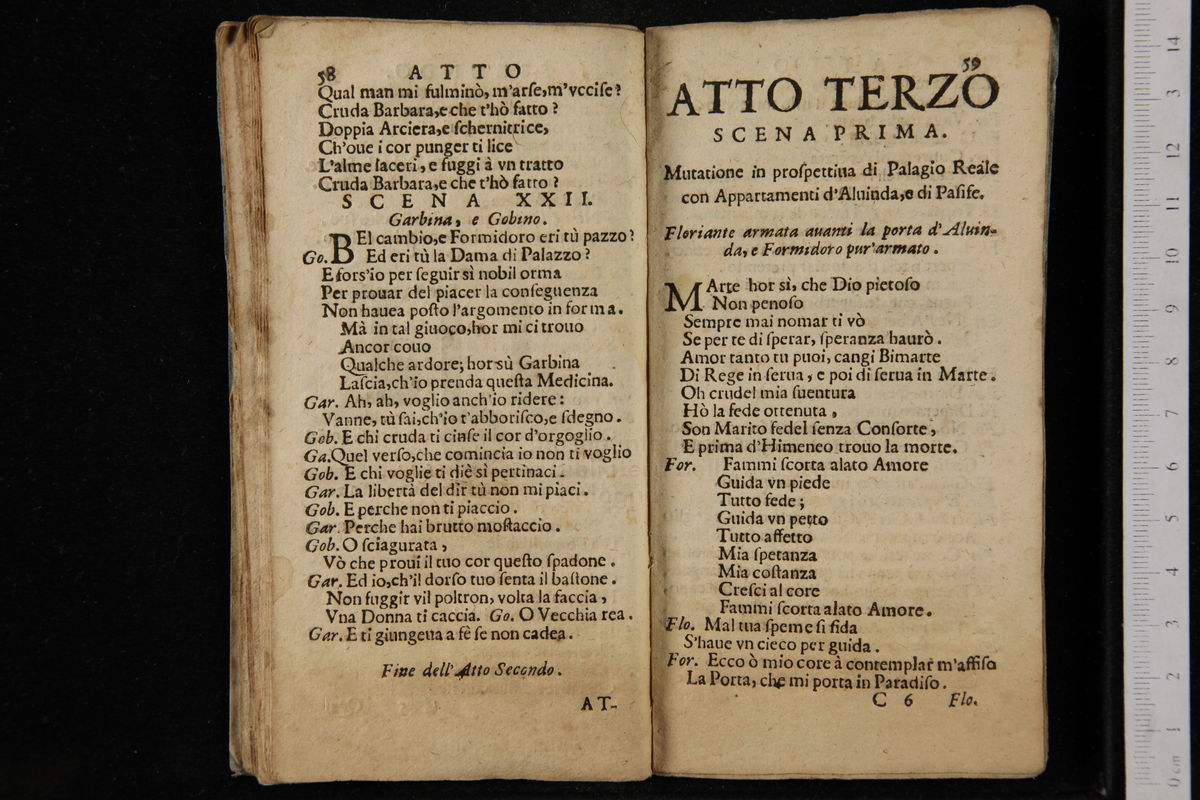 58 ATTO
Qual man mi fulminò, m'arſe, m'vcciſe?
Cruda Barbara, e che t'hò fatto?
Doppia Arciera, e ſchernitrice,
Ch'oue i cor punger ti lice
L'alme laceri, e fuggi à vn tratto
Cruda Barbara, e che t'hò fatto?
SCENA XXII.
Garbina, e Gobino.
BEl cambio, e Formidoro eri tù pazzo?
Go. Ed eri tù la Dama di Palazzo?
E fors'io per ſeguir sì nobil orma
Per prouar del piacer la conſeguenza
Non hauea poſto l'argomento in forma.
Mà in tal giuoco, hor mi ci trouo
Ancor couo
Qualche ardore; hor sù Garbina
Laſcia, ch'io prenda queſta Medicina.
Gar. Ah, ah, voglio anch'io ridere:
Vanne, tù ſai, ch'io t'abboriſco, e ſdegno.
Gob. E chi cruda ti cinſe il cor d'orgoglio.
Ga. Quel verſo, che comincia io non ti voglio
Gob. E chi voglie ti diè sì pertinaci.
Gar. La libertà del dir tù non mi piaci.
Gob. E perche non ti piaccio.
Gar. Perche hai brutto moſtaccio.
Gob. O ſciagurata,
Vò che proui il tuo cor queſto ſpadone.
Gar. Ed io, ch'il dorſo tuo ſenta il baſtone.
Non fuggir vil poltron, volta la faccia,
Vna Donna ti caccia. Go. O Vecchia rea.
Gar. E ti giungeua a fè ſe non cadea.
Fine dell'Atto Secondo.
AT-
59
ATTO TERZO
SCENA PRIMA.
Mutatione in proſpettiua di Palagio Reale
con Appartamenti d'Aluinda, e di Paſife.
Floriante armata auanti la porta d'Aluin-
da, e Formidoro pur'armato.
MArte hor sì, che Dio pietoſo
Non penoſo
Sempre mai nomar ti vò
Se per te di ſperar, ſperanza haurò.
Amor tanto tu puoi, cangi Bimarte
Di Rege in ſerua, e poi di ſerua in Marte.
Oh crudel mia ſuentura
Hò la fede ottenuta,
Son Marito fedel ſenza Conſorte,
E prima d'Himeneo trouo la morte.
For. Fammi ſcorta alato Amore
Guida vn piede
Tutto fede;
Guida vn petto
Tutto affetto
Mia ſperanza
Mia coſtanza
Creſci al core
Fammi ſcorta alato Amore.
Flo. Mal tua ſpeme ſi fida
S'haue vn cieco per guida.
For. Ecco ò mio core à contemplar m'affiſo
La Porta, che mi porta in Paradiſo.
C 6 Flo.